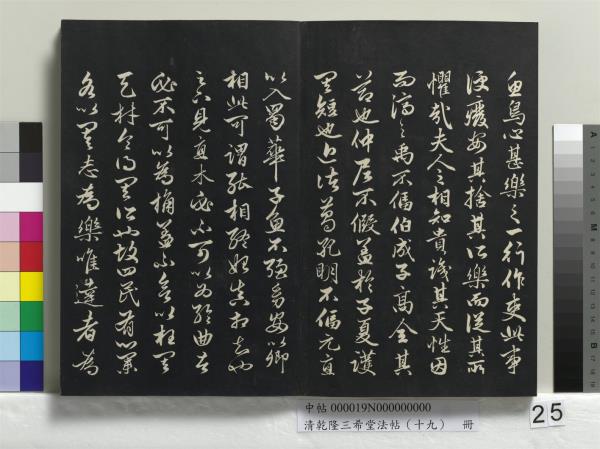 魚鳥心甚樂之一行作吏此事
便廢安能捨其所樂而從其所
懼哉夫人之相知貴識其天性因
而濟之禹不偪伯成子高全其
節也仲尼不假蓋於子夏護
其短也近諸葛孔明不偪元直
以入蜀華子魚不強幼安以卿
相此可謂能相終始真相知也
足下見直木必不可以為輪曲者
必不可以為桷蓋不欲以枉其
天材令得其所也故四民有業
各以得志為樂唯達者為
中帖 000019N000000000
清乾隆三希堂法帖(十九) 冊
25